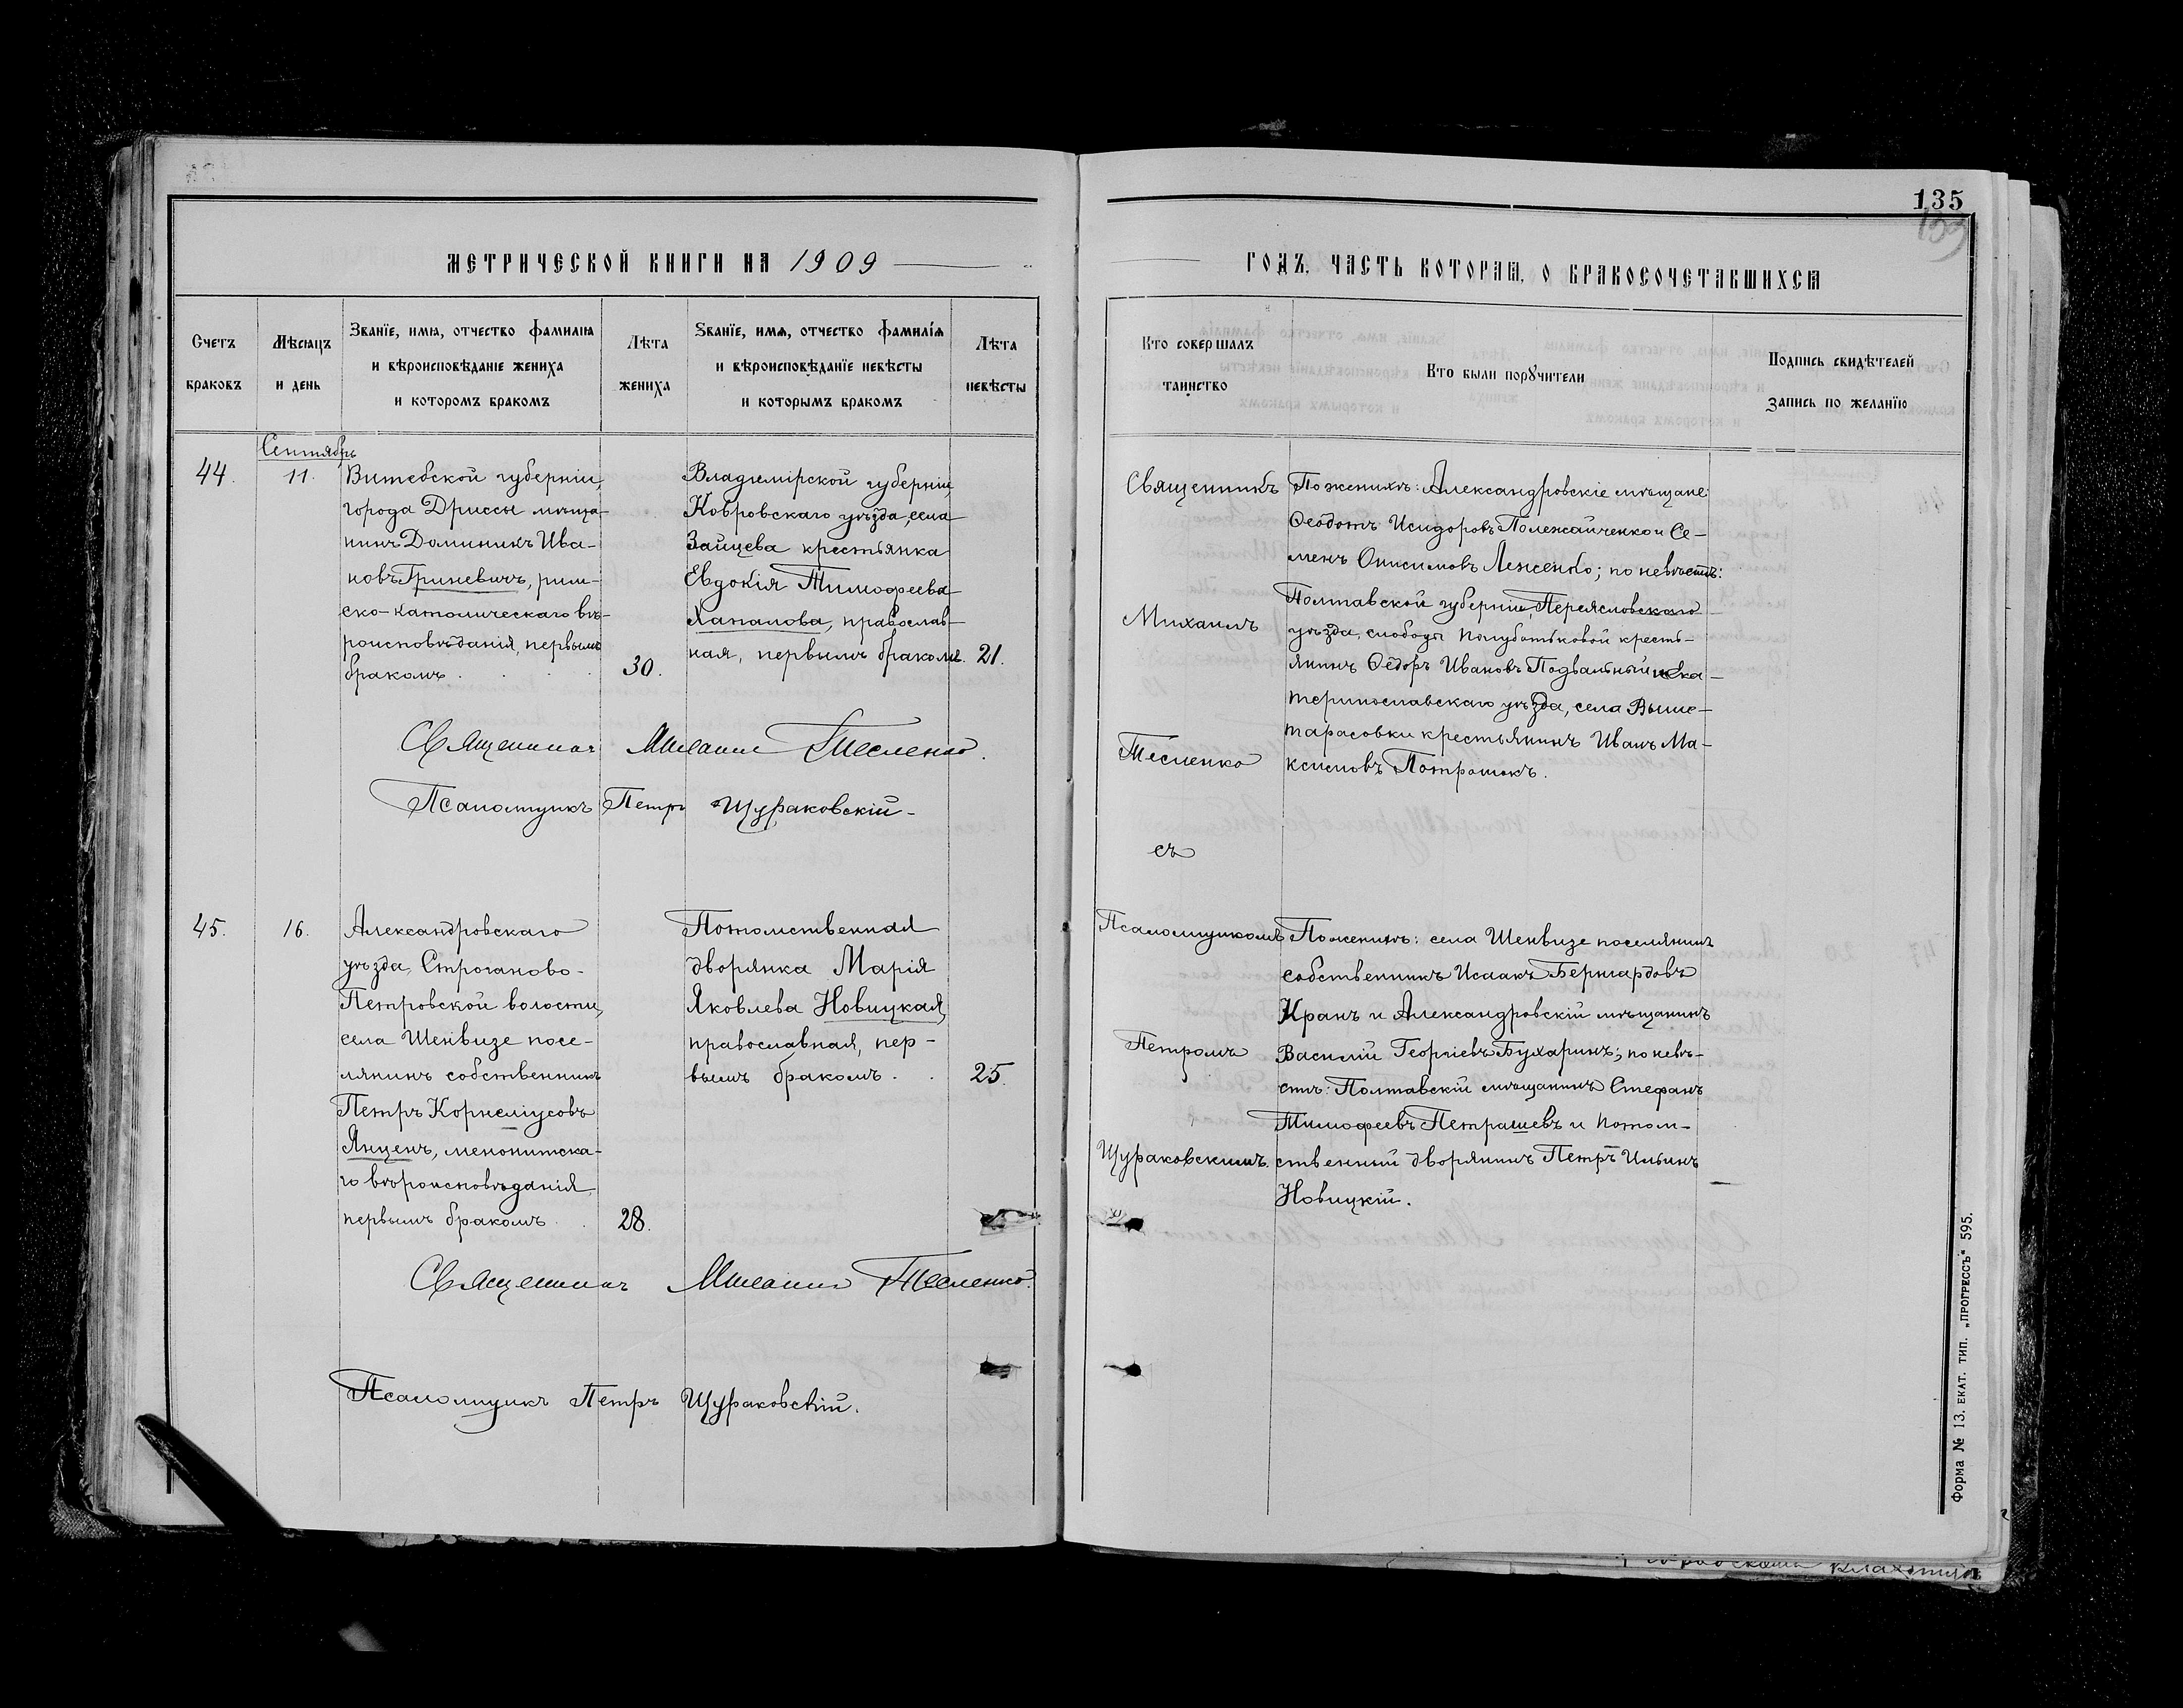 135
МЕТРИЧЕСКОЙ КНИГИ НА 1909
ГОДЪ, ЧАСТЬ ВТОРАЯ, О БРАКОСОЧЕТАВШИХСЯ
Счетъ
браковъ
Мѣсяцъ
и день
Званіе, имя, отчество фамилія
и вѣроисповѣданіе жениха
и которомъ бракомъ
Лѣта
жениха
Званіе, имя, отчество фамилія
и вѣроисповѣданіе невѣсты
и которымъ бракомъ
Лѣта
невѣсты
Кто совершалъ
таинство
Кто были поручители
Подпись свидѣтелей
запись по желанію
Сентябрь
44.
11.
Витебской губерніи,
города Дриссы мѣща-
нинъ Доминикъ Ива-
новъ Гриневичъ, рим-
ско-католическаго вѣ-
роисповѣданія, первымъ
бракомъ
30.
Владимірской губерніи,
Ковровскаго уѣзда, села
Зайцева крестьянка
Евдокія Тимофеева
Хапалова, православ-
ная, первымъ бракомъ.
21.
Священникъ
Михаилъ
Тесленко
съ
По женихѣ: Александровскіе мѣщане
Ѳеодотъ Исидоровъ Полежайченко и Се-
менъ Онисимовъ Леженко; по невѣстѣ:
Полтавской губерніи, Переясловскаго
уѣзда, слободы Полуботьковой кресть-
янинъ Ѳеодоръ Ивановъ Подвальный и Ека-
теринославскаго уѣзда, села Выше-
тарасовки крестьянинъ Иванъ Ма-
ксимовъ Потрошокъ.
Священникъ Михаилъ Тесленко.
Псаломщикъ Петръ Щураковскій
45.
16.
Александровскаго
уѣзда, Строганово-
Петровской волости,
села Шенвизе посе-
лянинъ собственникъ
Петръ Корнеліусовъ
Янценъ, менонитска-
го вѣроисповѣданія
первымъ бракомъ
28.
Потомственная
дворянка Марія
Яковлева Новицкая,
православная, пер-
вымъ бракомъ.
25.
Псаломщикомъ
Петромъ
Щураковскимъ.
По женихѣ: села Шенвизе поселянинъ
собственникъ Исаакъ Бернгардовъ
Кранъ и Александровскій мѣщанинъ
Василій Георгіевъ Бухаринъ; по невѣ-
стѣ: Полтавскій мѣщанинъ Стефанъ
Тимофеевъ Петрашевъ и потом-
ственный дворянинъ Петръ Ильинъ
Новицкій.
Священникъ Михаилъ Тесленко.
Псаломщикъ Петръ Щураковскій.
Форма № 13. ЕКАТ. ТИП. „ПРОГРЕССЪ“ 595.